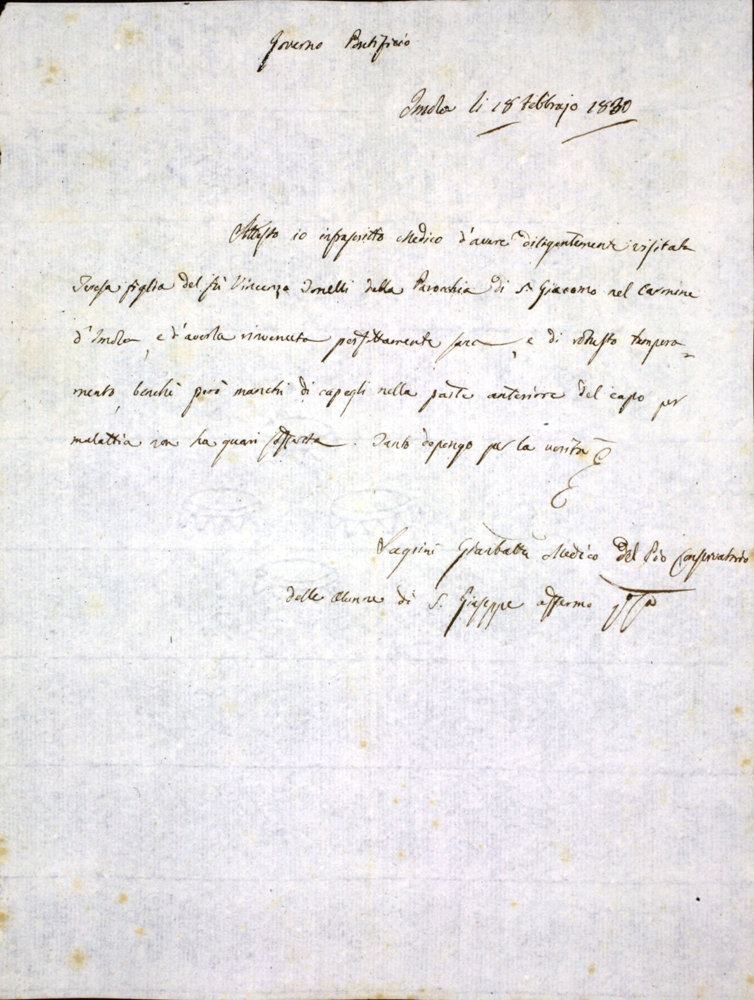 Governo Pontificio
Imola li 18 Febbrajo 1830
Attesto io infrascritto Medico d'avere diligentemente visitata
Teresa figlia del fù Vincenzo Tonelli della Parocchia di S. Giacomo nel Carmine
d'Imola, e d'averla rinvenuta perfettamente sana, e di robusto tempera=
mento, benchè però manchi di capegli nella parte anteriore del capo per
malattia non ha guari sofferta. Tanto depongo per la verità
Giambatta Medico del Pio Conservatorio
delle Alunne di S. Giuseppe affermo